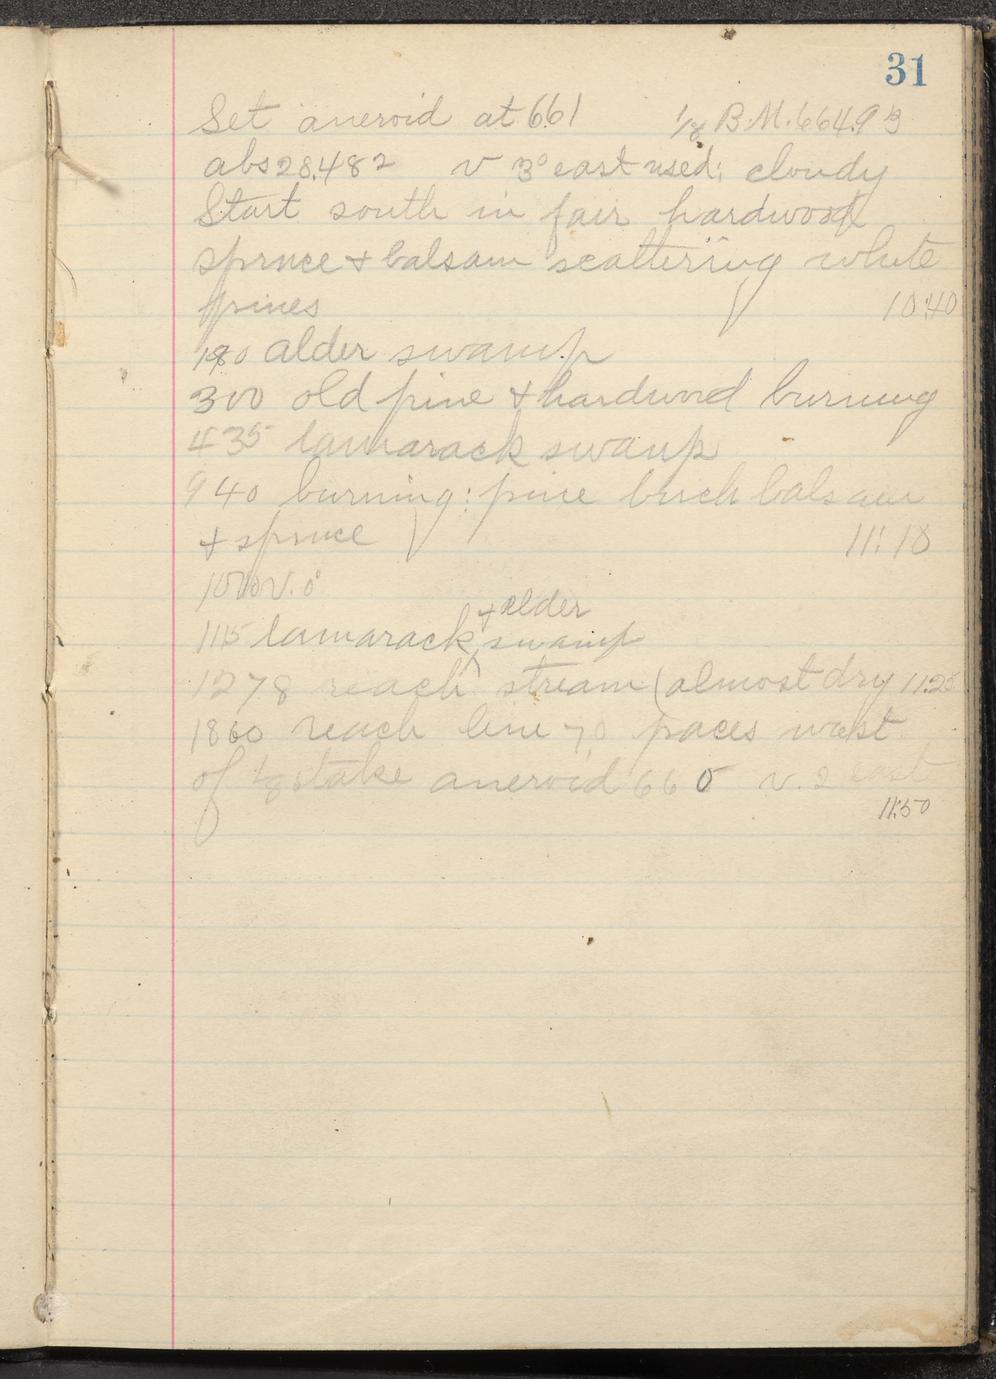 31
Set aneroid at 661 1/8 B.M. 664.93
abs 28.482 v 3° east used; cloudy
Start south in fair hardwood
spruce + balsam scattering white
pines 10:40
180 alder swamp
300 old pine + hardwood burning
435 tamarack swamp
940 burning: pine birch balsam
+ spruce 11:18
1000 v. 0°
+ alder
1115 tamarack swamp
1278 reach stream (almost dry 11:25
1860 reach line 70 paces west
of 1/8 stake aneroid 660 v. 2 east
11:50